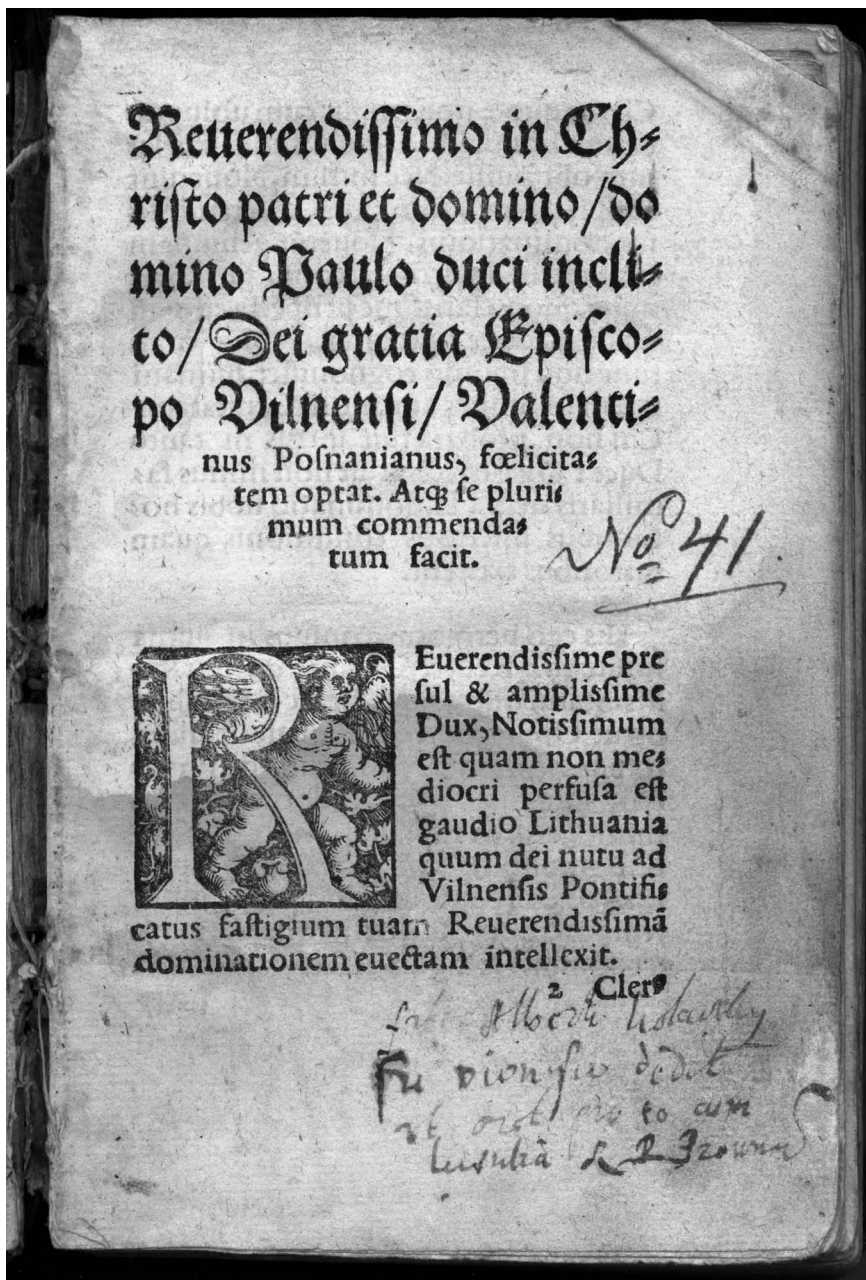 Reuerendissimo in Ch⸗
risto patri et domino/do
mino Paulo duci incli⸗
to/Dei gratia Episco⸗
po Vilnensi/ Valenti⸗
nus Posnanianus, fœlicita⸗
tem optat. Atqꝫ se pluri⸗
mum commenda⸗
tum facit.
No 41
REuerendissime pre
sul & amplissime
Dux, Notissimum
est quam non me⸗
diocri perfusa est
gaudio Lithuania
quum dei nutu ad
Vilnensis Pontifi⸗
catus fastigium tuam Reuerendissimã
dominationem euectam intellexit.
2 Cler⸗
Alberti
dedit
eo cum